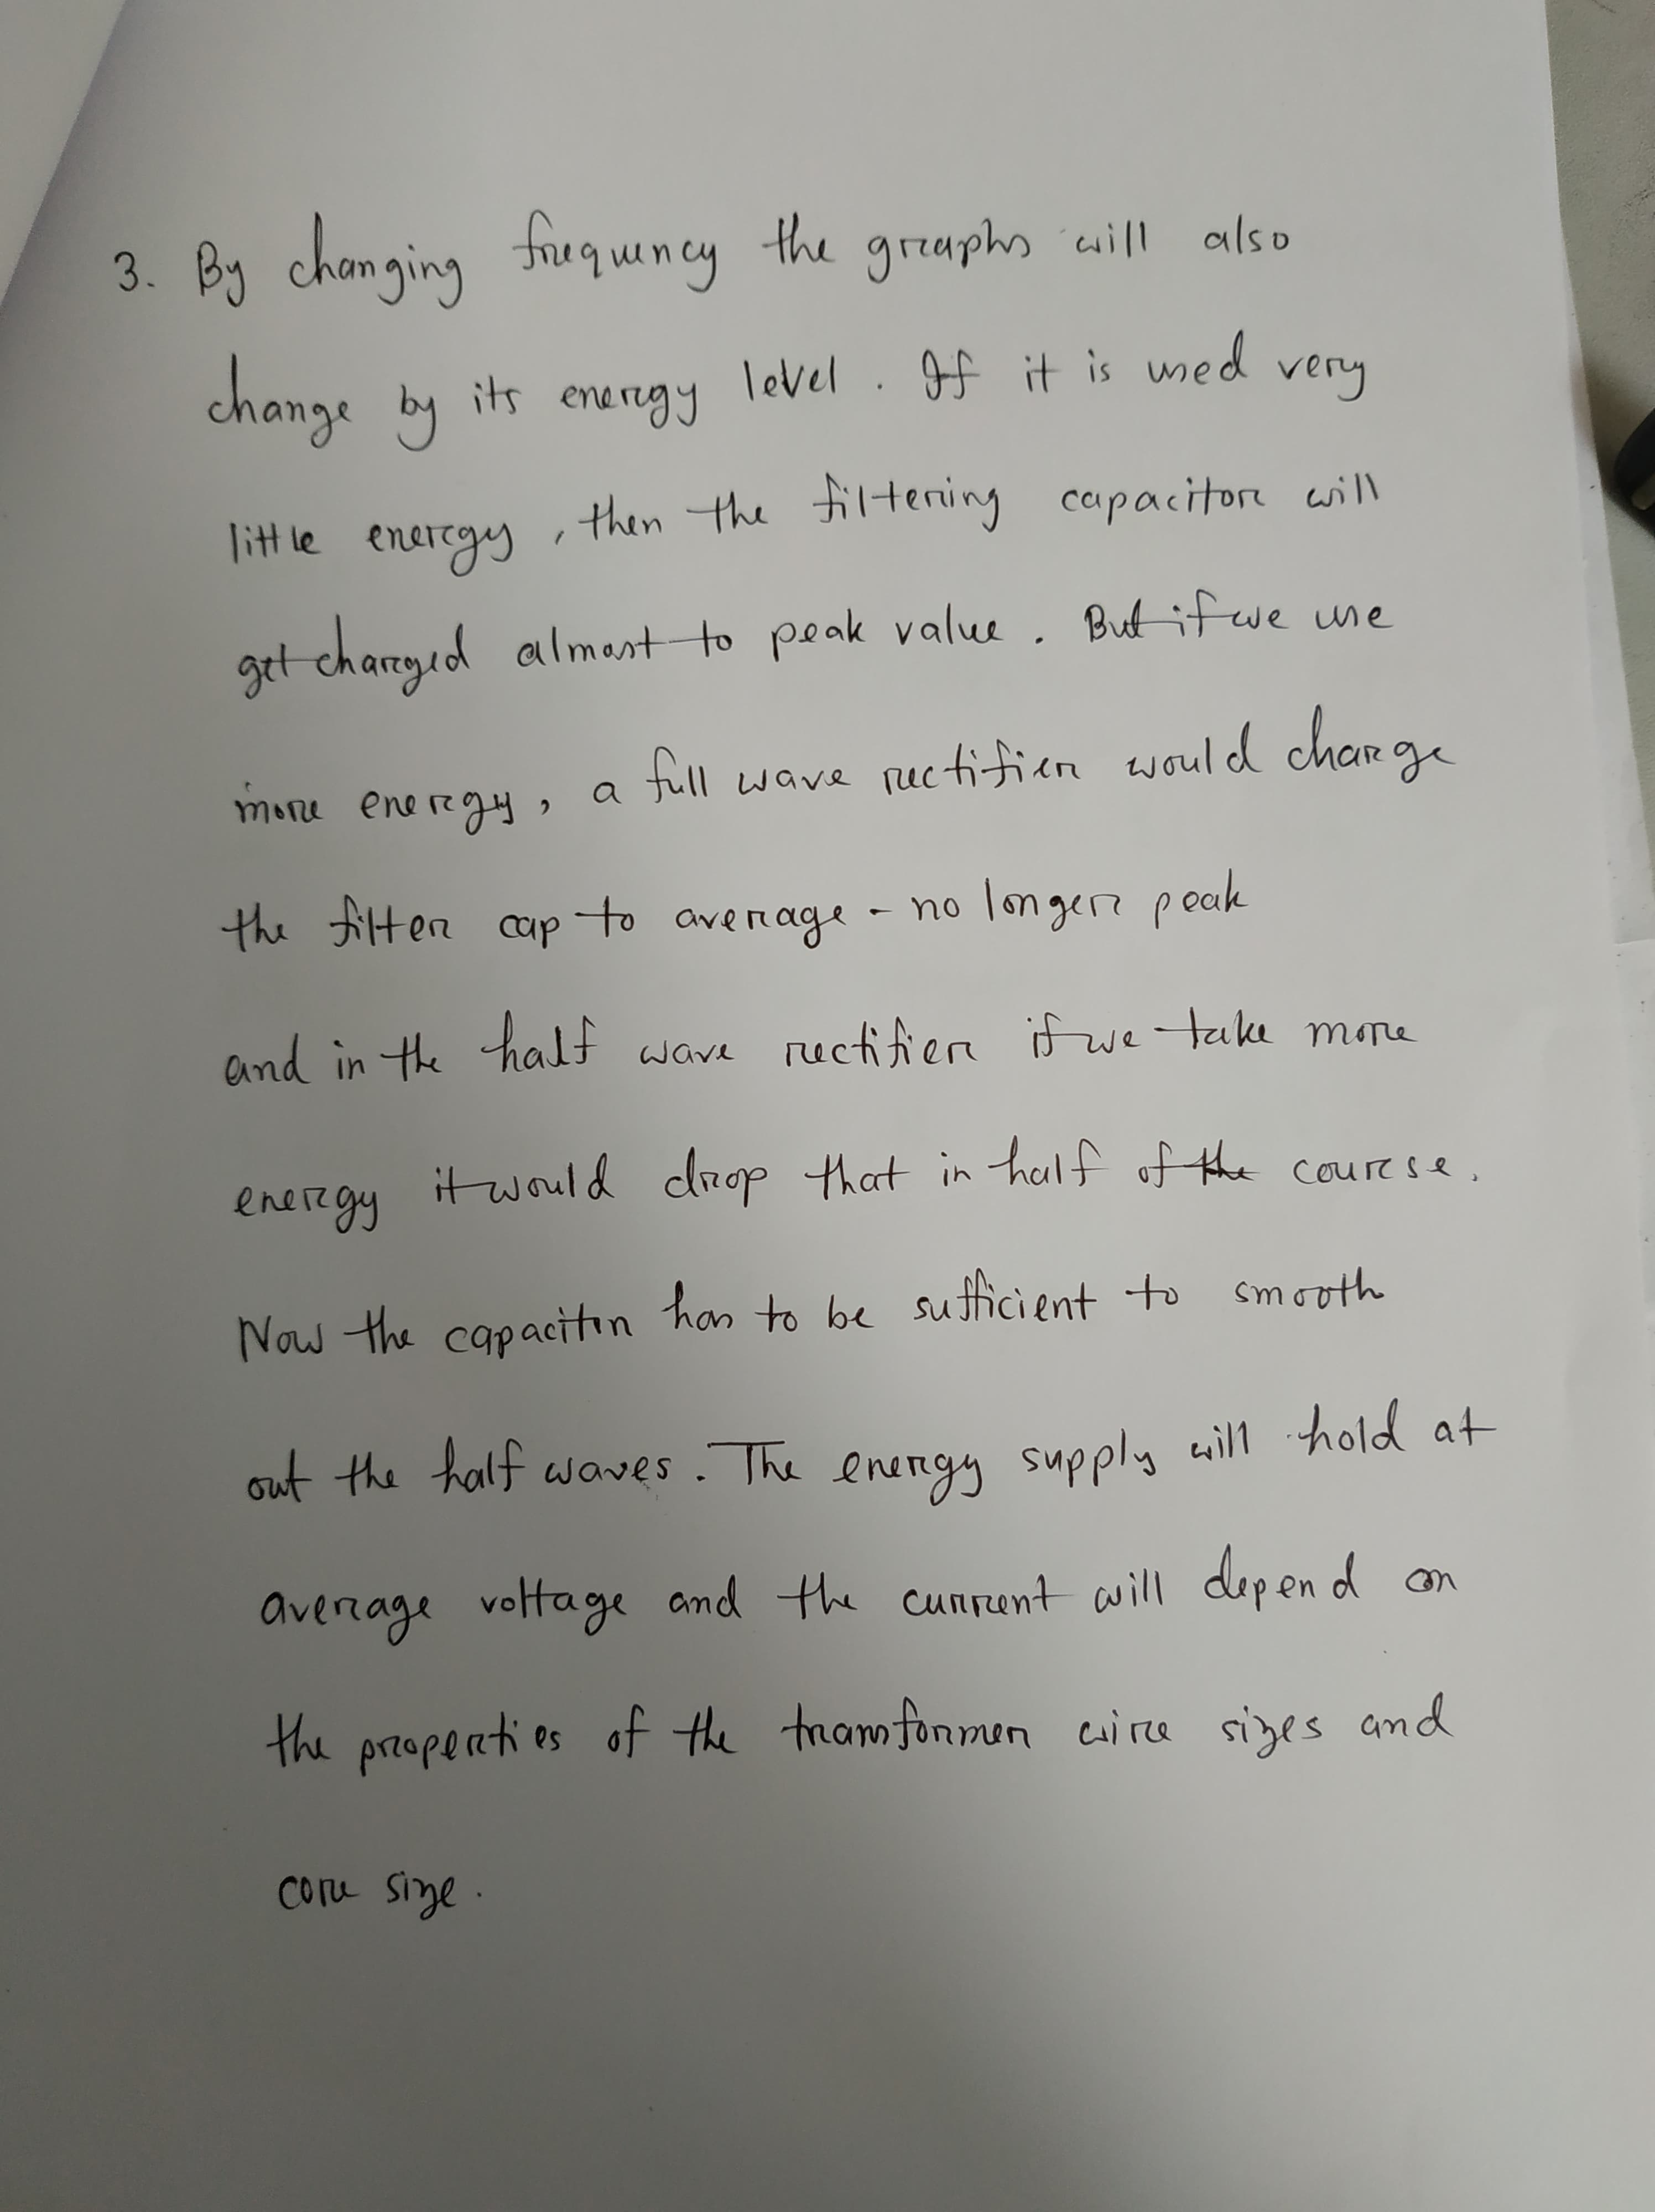 3. By changing frequency the graphs will also
change by its energy level. If it is used very
little energy, then the filtering capacitor will
get charged almost to peak value. But if we use
more energy, a full wave rectifier would charge
the filter cap to average - no longer peak
and in the half wave rectifier if we take more
energy it would drop that in half of the course.
Now the capacitor has to be sufficient to smooth
out the half waves. The energy supply will hold at
average voltage and the current will depend on
the properties of the transformer wire sizes and
core size.